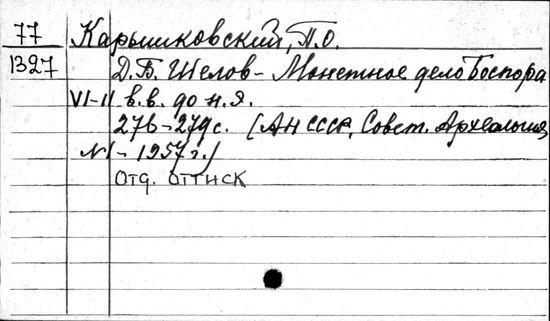 77 Карышковский, П.О.
1327 Д.Б. Шелов - Монетное дело Боспора
VI-II в.в. до н.я.
276-279 с. (АН СССР, Совет. Археология
№1 - 1957 г.)
Отд. оттиск